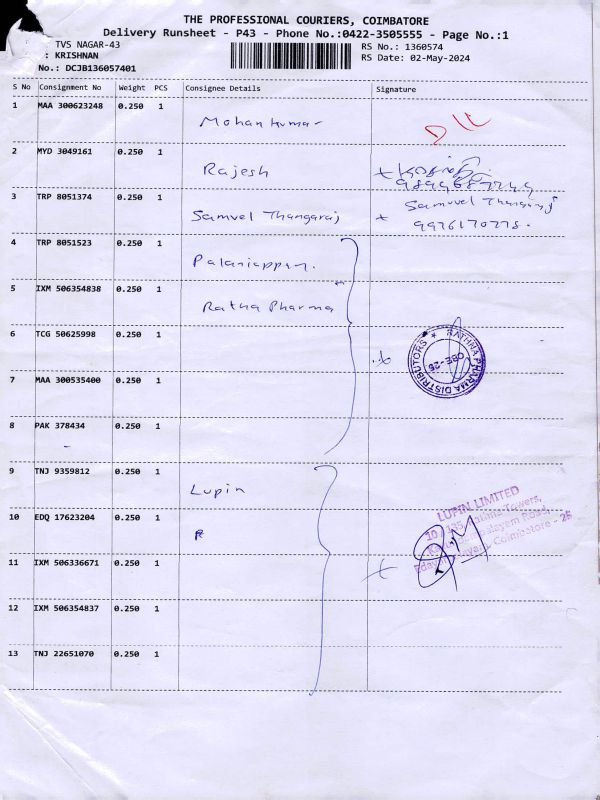 THE PROFESSIONAL COURIERS, COIMBATORE
Delivery Runsheet - P43 - Phone No.:0422-3505555 - Page No.:1
TVS NAGAR-43
: KRISHNAN
No.: DCJB136057401
RS No.: 1360574
RS Date: 02-May-2024
S No Consignment No Weight PCS Consignee Details Signature
1 MAA 300623248 0.250 1 Mohan Kumar
2 MYD 3049161 0.250 1 Rajesh
3 TRP 8051374 0.250 1 Samvel Thangaraj Samuvel Thangaraj
9976170278.
4 TRP 8051523 0.250 1 Palaniappan.
5 IXM 506354838 0.250 1 Ratna Pharma
6 TCG 50625998 0.250 1
RATHNA PHARMA DISTRIBUTORS ★
CBE-25
7 MAA 300535400 0.250 1
8 PAK 378434 0.250 1
9 TNJ 9359812 0.250 1 Lupin
LUPIN LIMITED
10 EDQ 17623204 0.250 1 R
11 IXM 506336671 0.250 1
12 IXM 506354837 0.250 1
13 TNJ 22651070 0.250 1